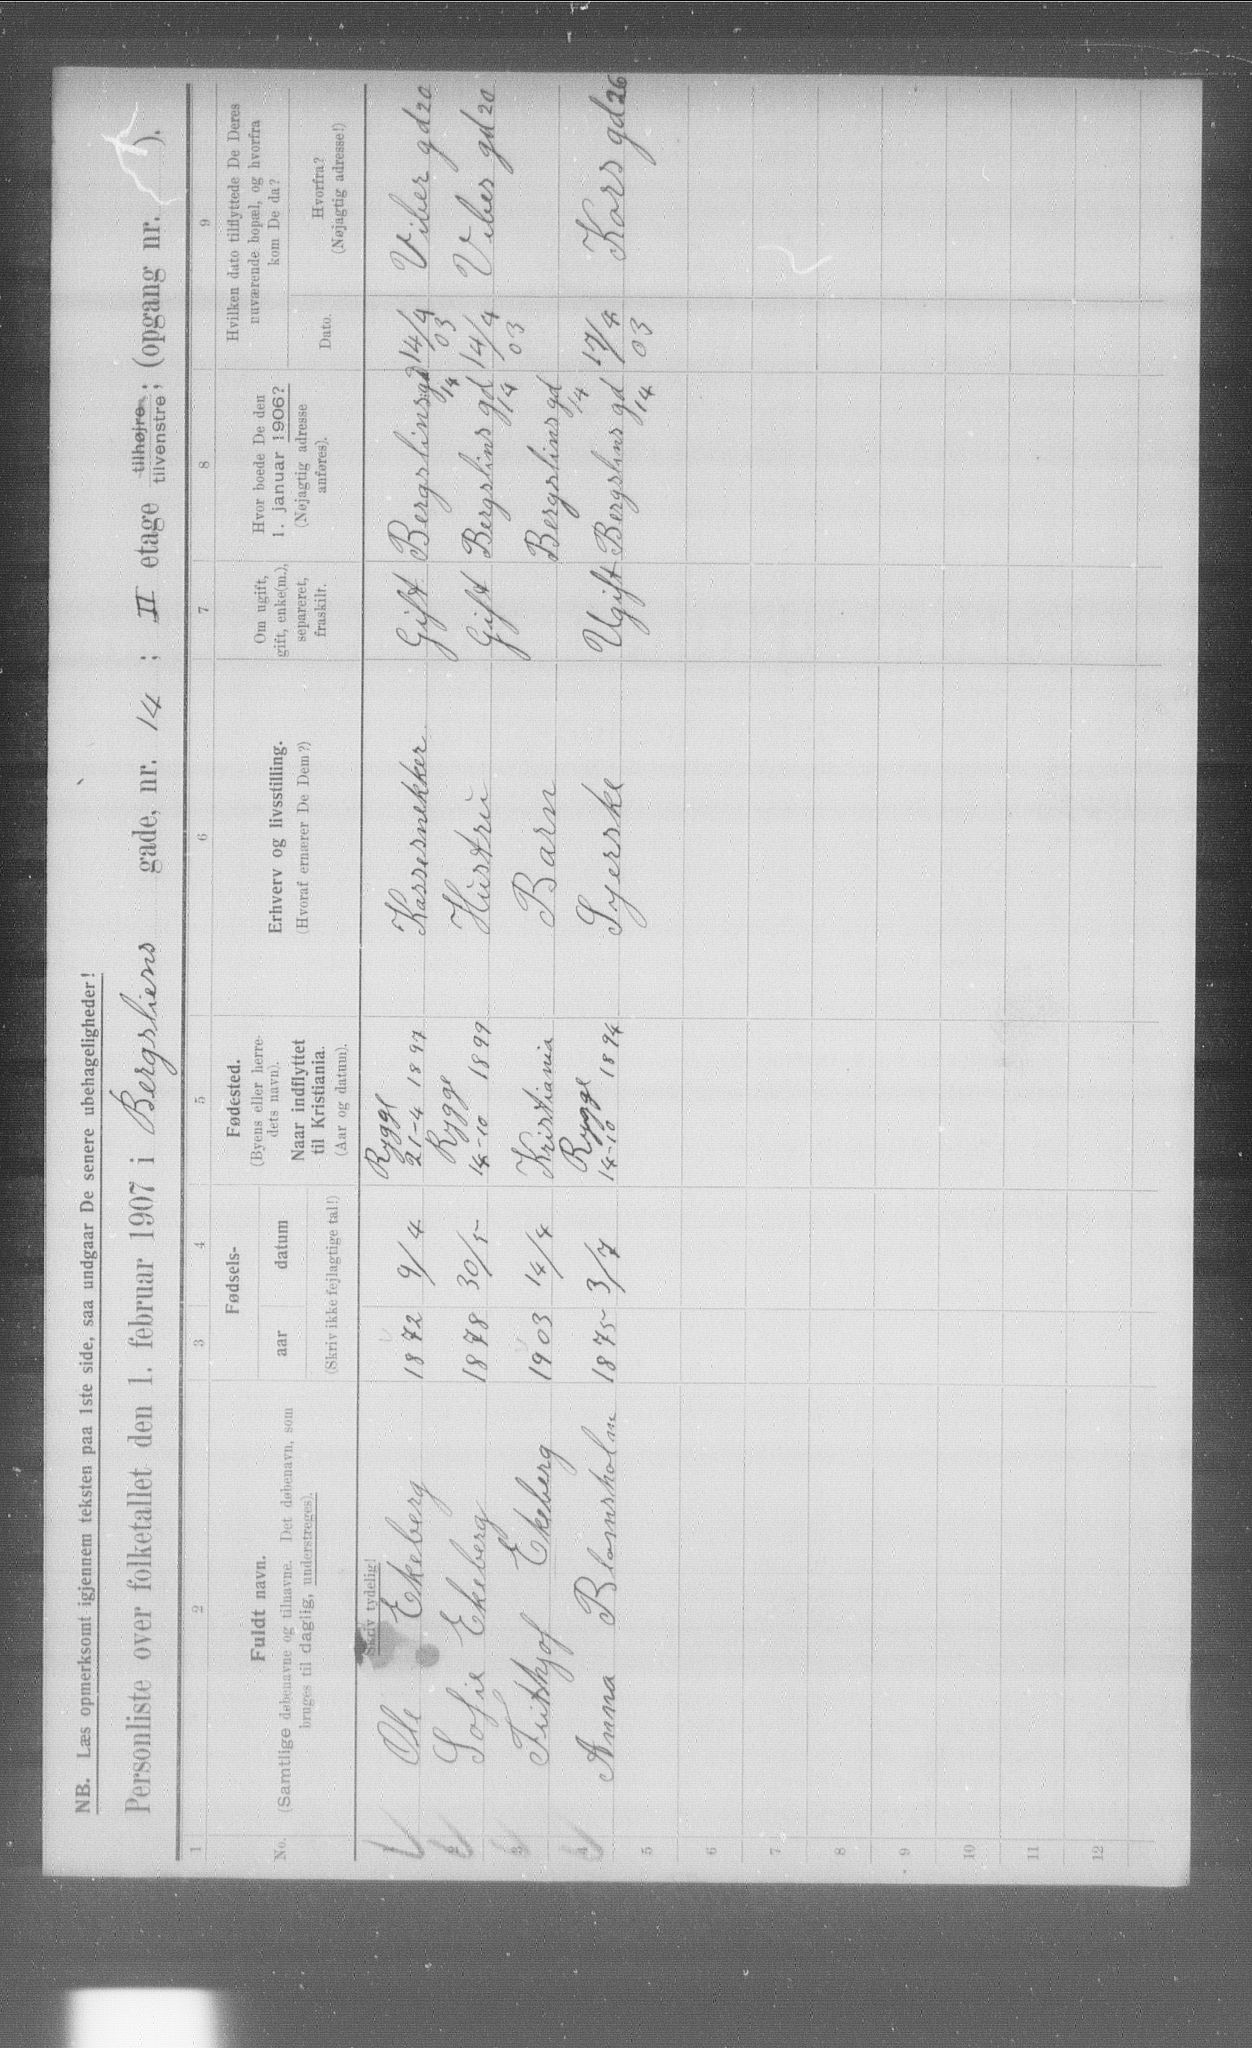 NB. Læs opmerksomt igjennem teksten paa 1ste side, saa undgaar De senere ubehageligheder!
Personliste over folketallet den 1. februar 1907 i Bergsliens gade, nr. 14 ; II etage tilhøjre tilvenstre ; (opgang nr. ).
1 2 3 4 5 6 7 8 9
No.
Fuldt navn.
(Samtlige døbenavne og tilnavne. Det døbenavn, som
bruges til daglig, understreges).
Fødsels-
aar datum
(Skriv ikke fejlagtige tal!)
Fødested.
(Byens eller herre-
dets navn).
Naar indflyttet
til Kristiania.
(Aar og datum).
Erhverv og livsstilling.
(Hvoraf ernærer De Dem?)
Om ugift,
gift, enke(m.),
separeret,
fraskilt.
Hvor boede De den
1. januar 1906?
(Nøjagtig adresse
anføres).
Hvilken dato tilflyttede De Deres
nuværende bopæl, og hvorfra
kom De da?
Dato.
Hvorfra?
(Nøjagtig adresse!)
Skriv tydelig!
1 Ole Ekeberg 1872 9/4 Rygge 21-4 1897 Kassesnekker Gift Bergslinsgd 14 14/4 03 Viber gd 20
2 Sofie Ekeberg 1878 30/5 Rygge 14-10 1899 Hustru Gift Bergslins gd 14 14/4 03 Vibes gd 20
3 Frithjof Ekeberg 1903 14/4 Kristiania Barn Bergslinsgd 14
4 Anna Blomsholm 1875 3/7 Rygge 14-10 1894 Syerske Ugift Bergslins gd 14 17/4 03 Kors gd 26
5
6
7
8
9
10
11
12